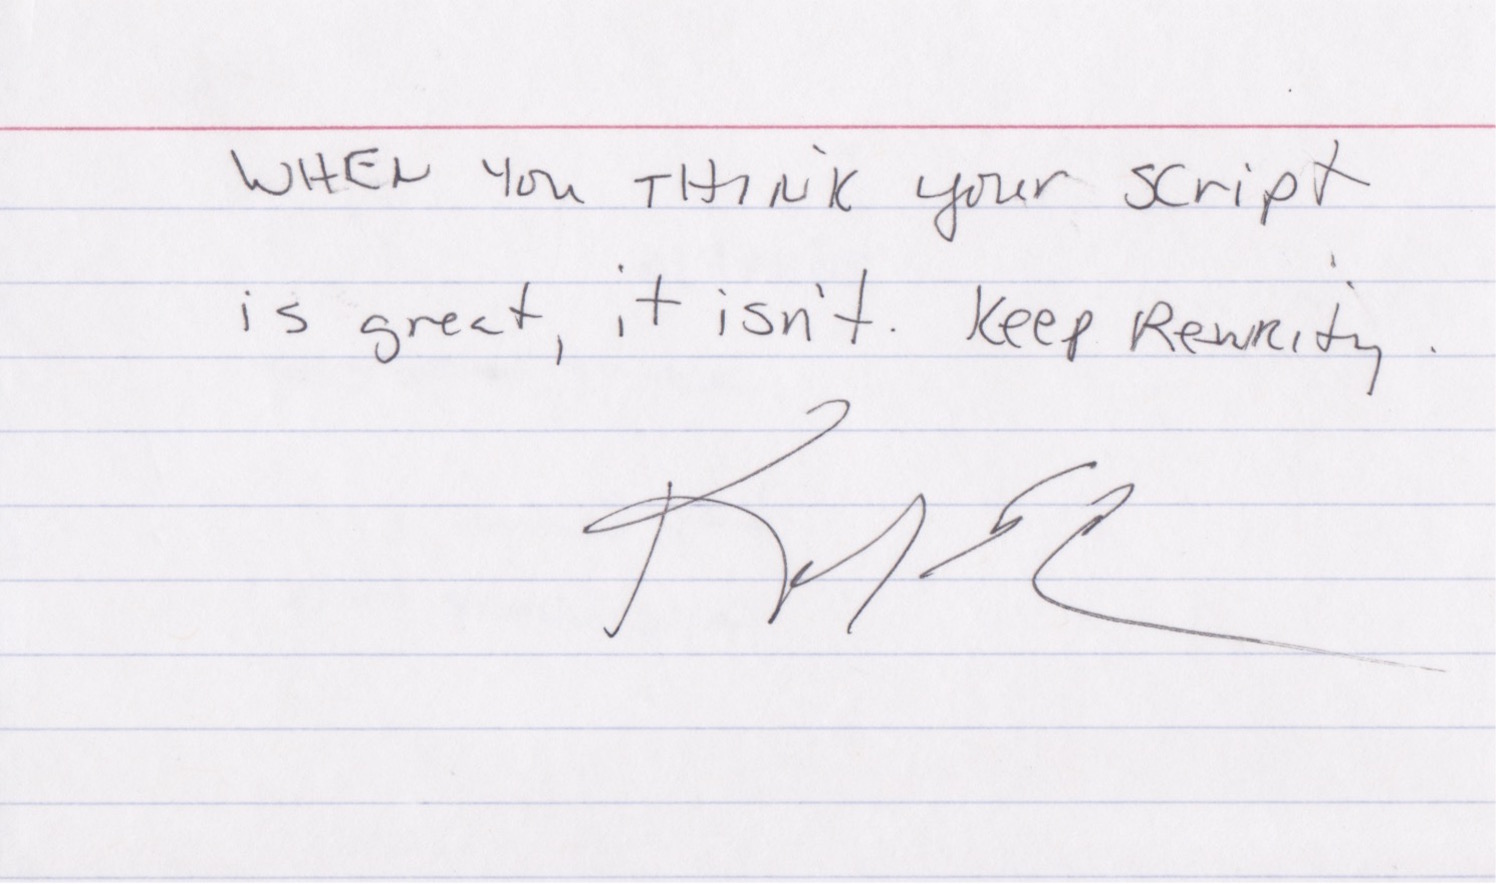 WHEN you THINK your script
is great, it isn't. Keep Rewriting.